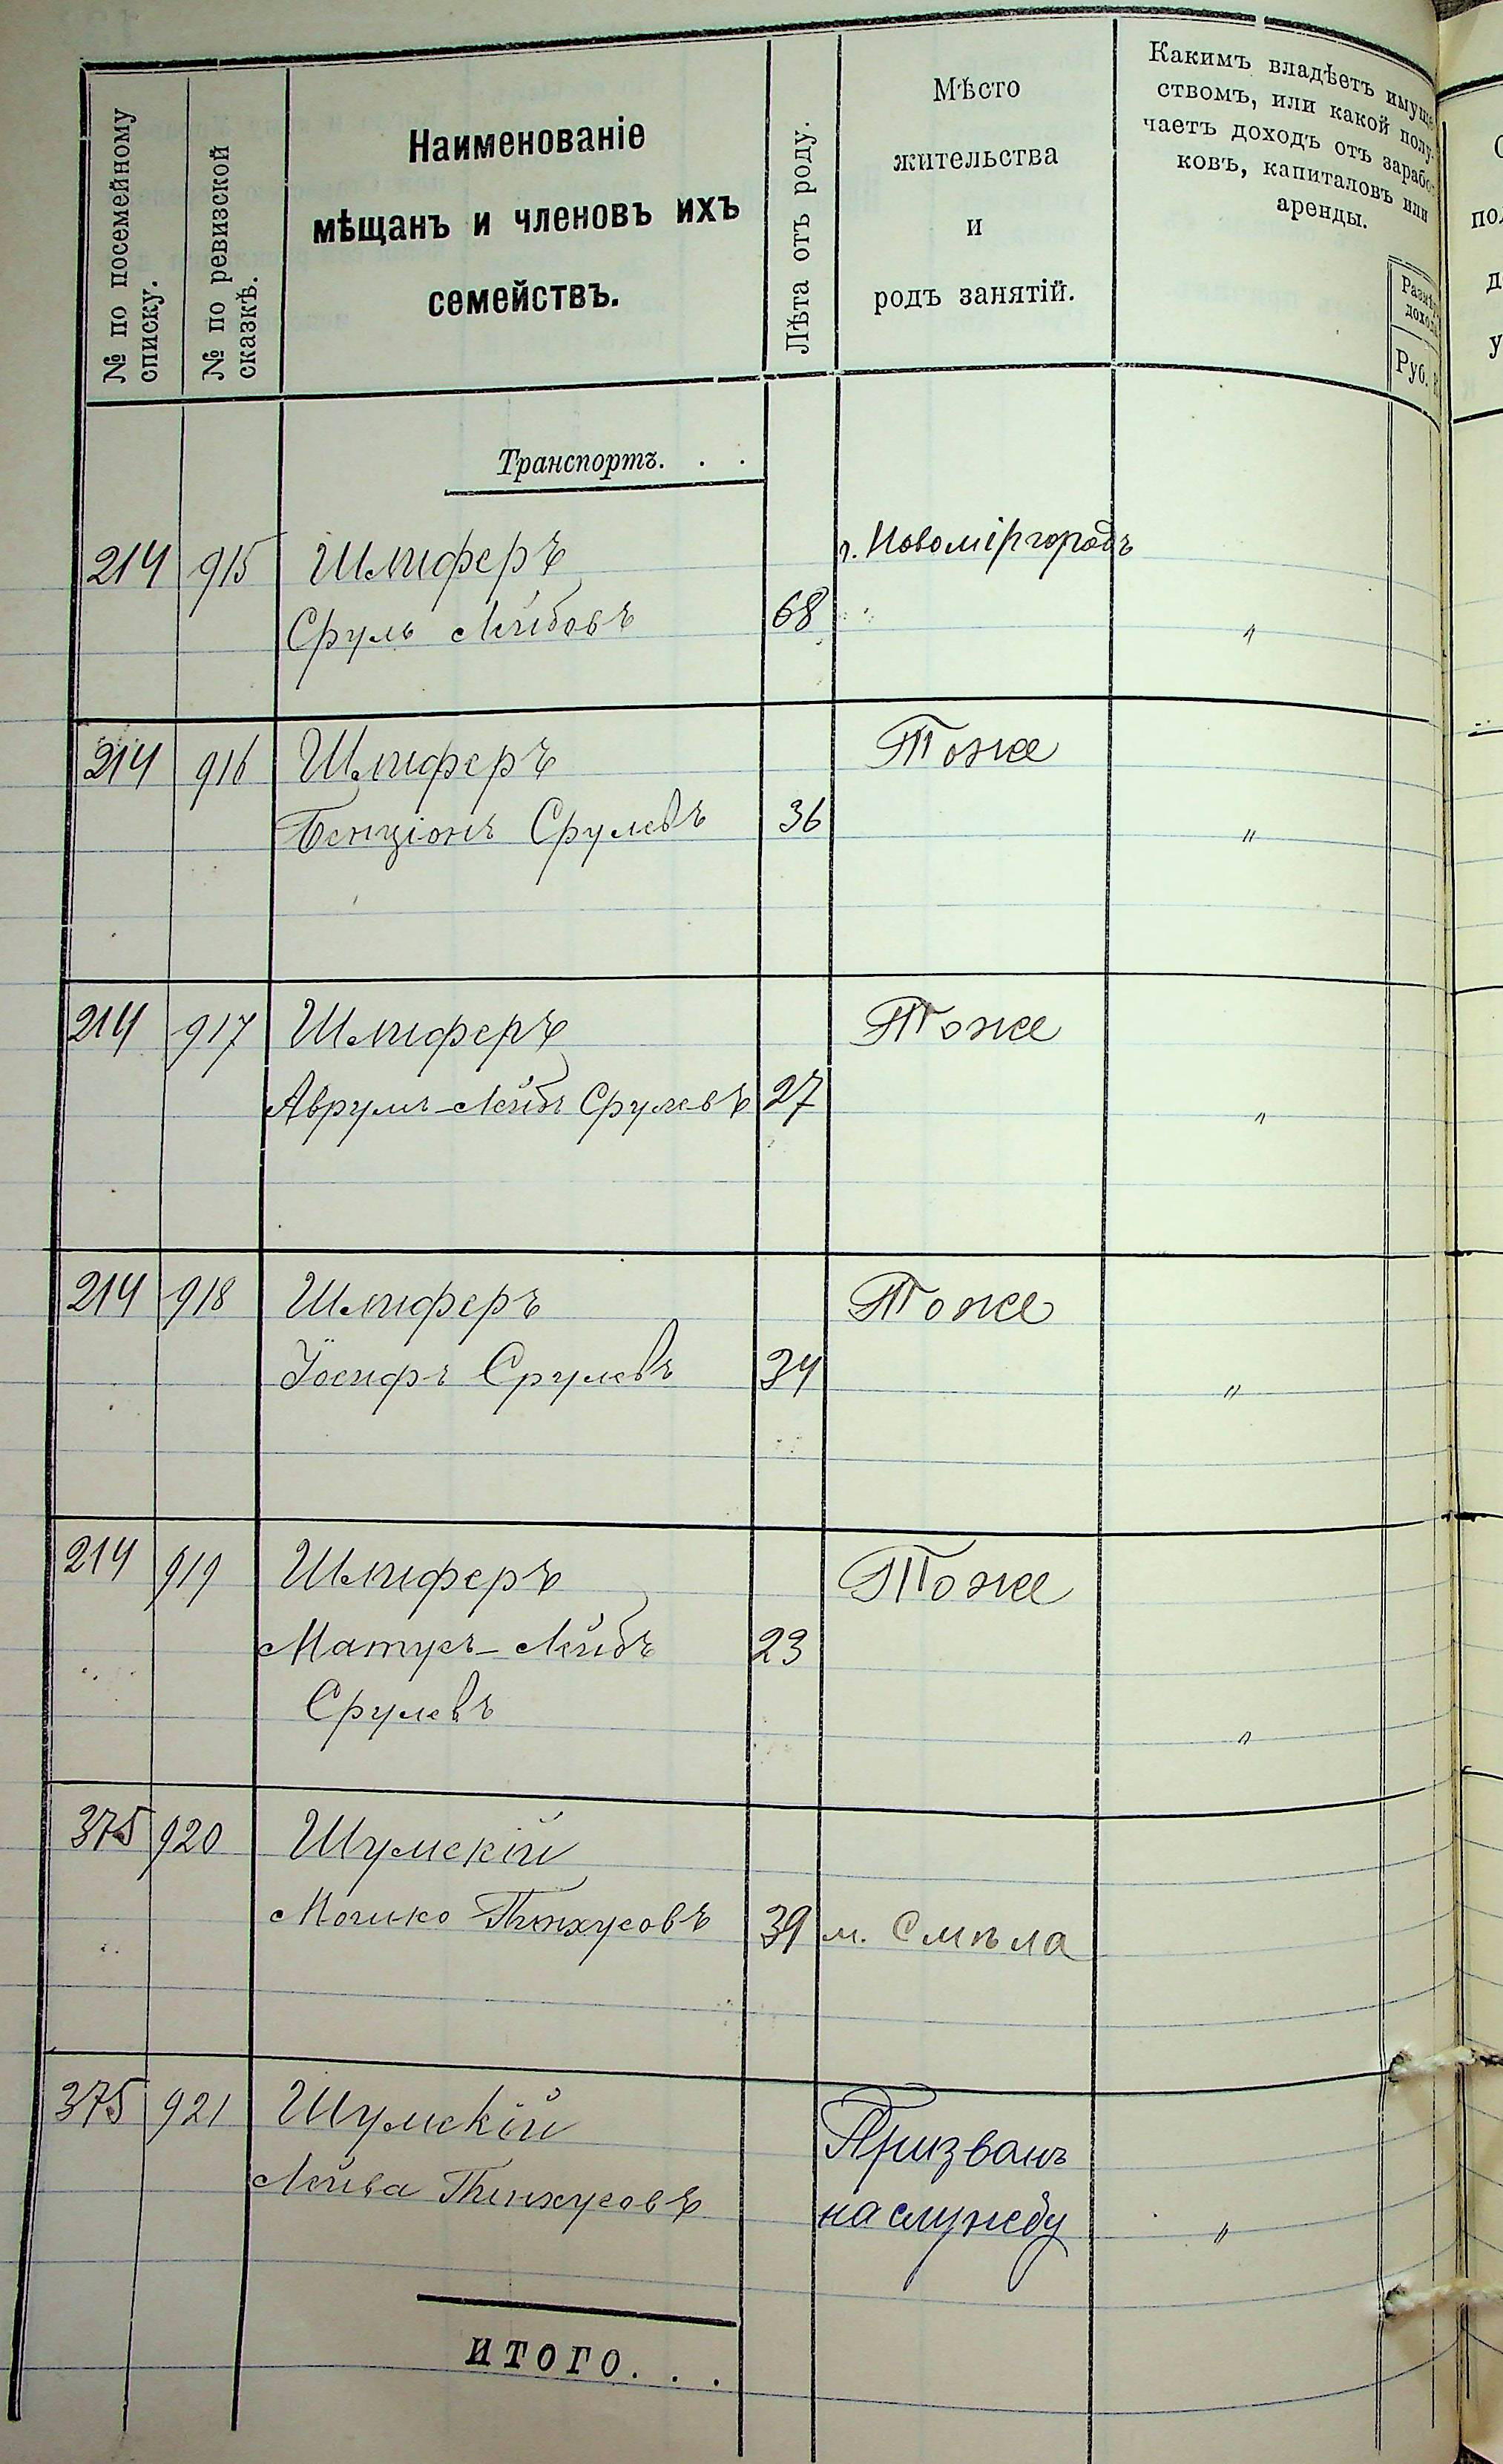 № по посемейному
списку.
№ по ревизской
сказкѣ.
Наименованіе
мѣщанъ и членовъ ихъ
семействъ.
Лѣта отъ роду.
Мѣсто
жительства
и
родъ занятій.
Какимъ владѣетъ имуще
ствомъ, или какой полу-
чаетъ доходъ отъ зарабо-
ковъ, капиталовъ или
аренды.
Размѣр
доход
Руб.
Транспортъ. . .
214 915 Шлиферъ г. Новоміргородъ
Сруль Лейбовъ 68 "
214 916 Шлиферъ Тоже
Бенціонъ Срулевъ 36 "
214 917 Шлиферъ Тоже
Аврумъ-Лейбъ Срулевъ 27 "
214 918 Шлиферъ Тоже
Іосифъ Срулевъ 34 "
214 919 Шлиферъ Тоже
Матусъ-Лейбъ 23
Срулевъ "
375 920 Шумскій
Мошко Пинхусовъ 39 м. Смѣла
375 921 Шумскій Призванъ
Лейва Пинхусовъ на службу "
ИТОГО. . .